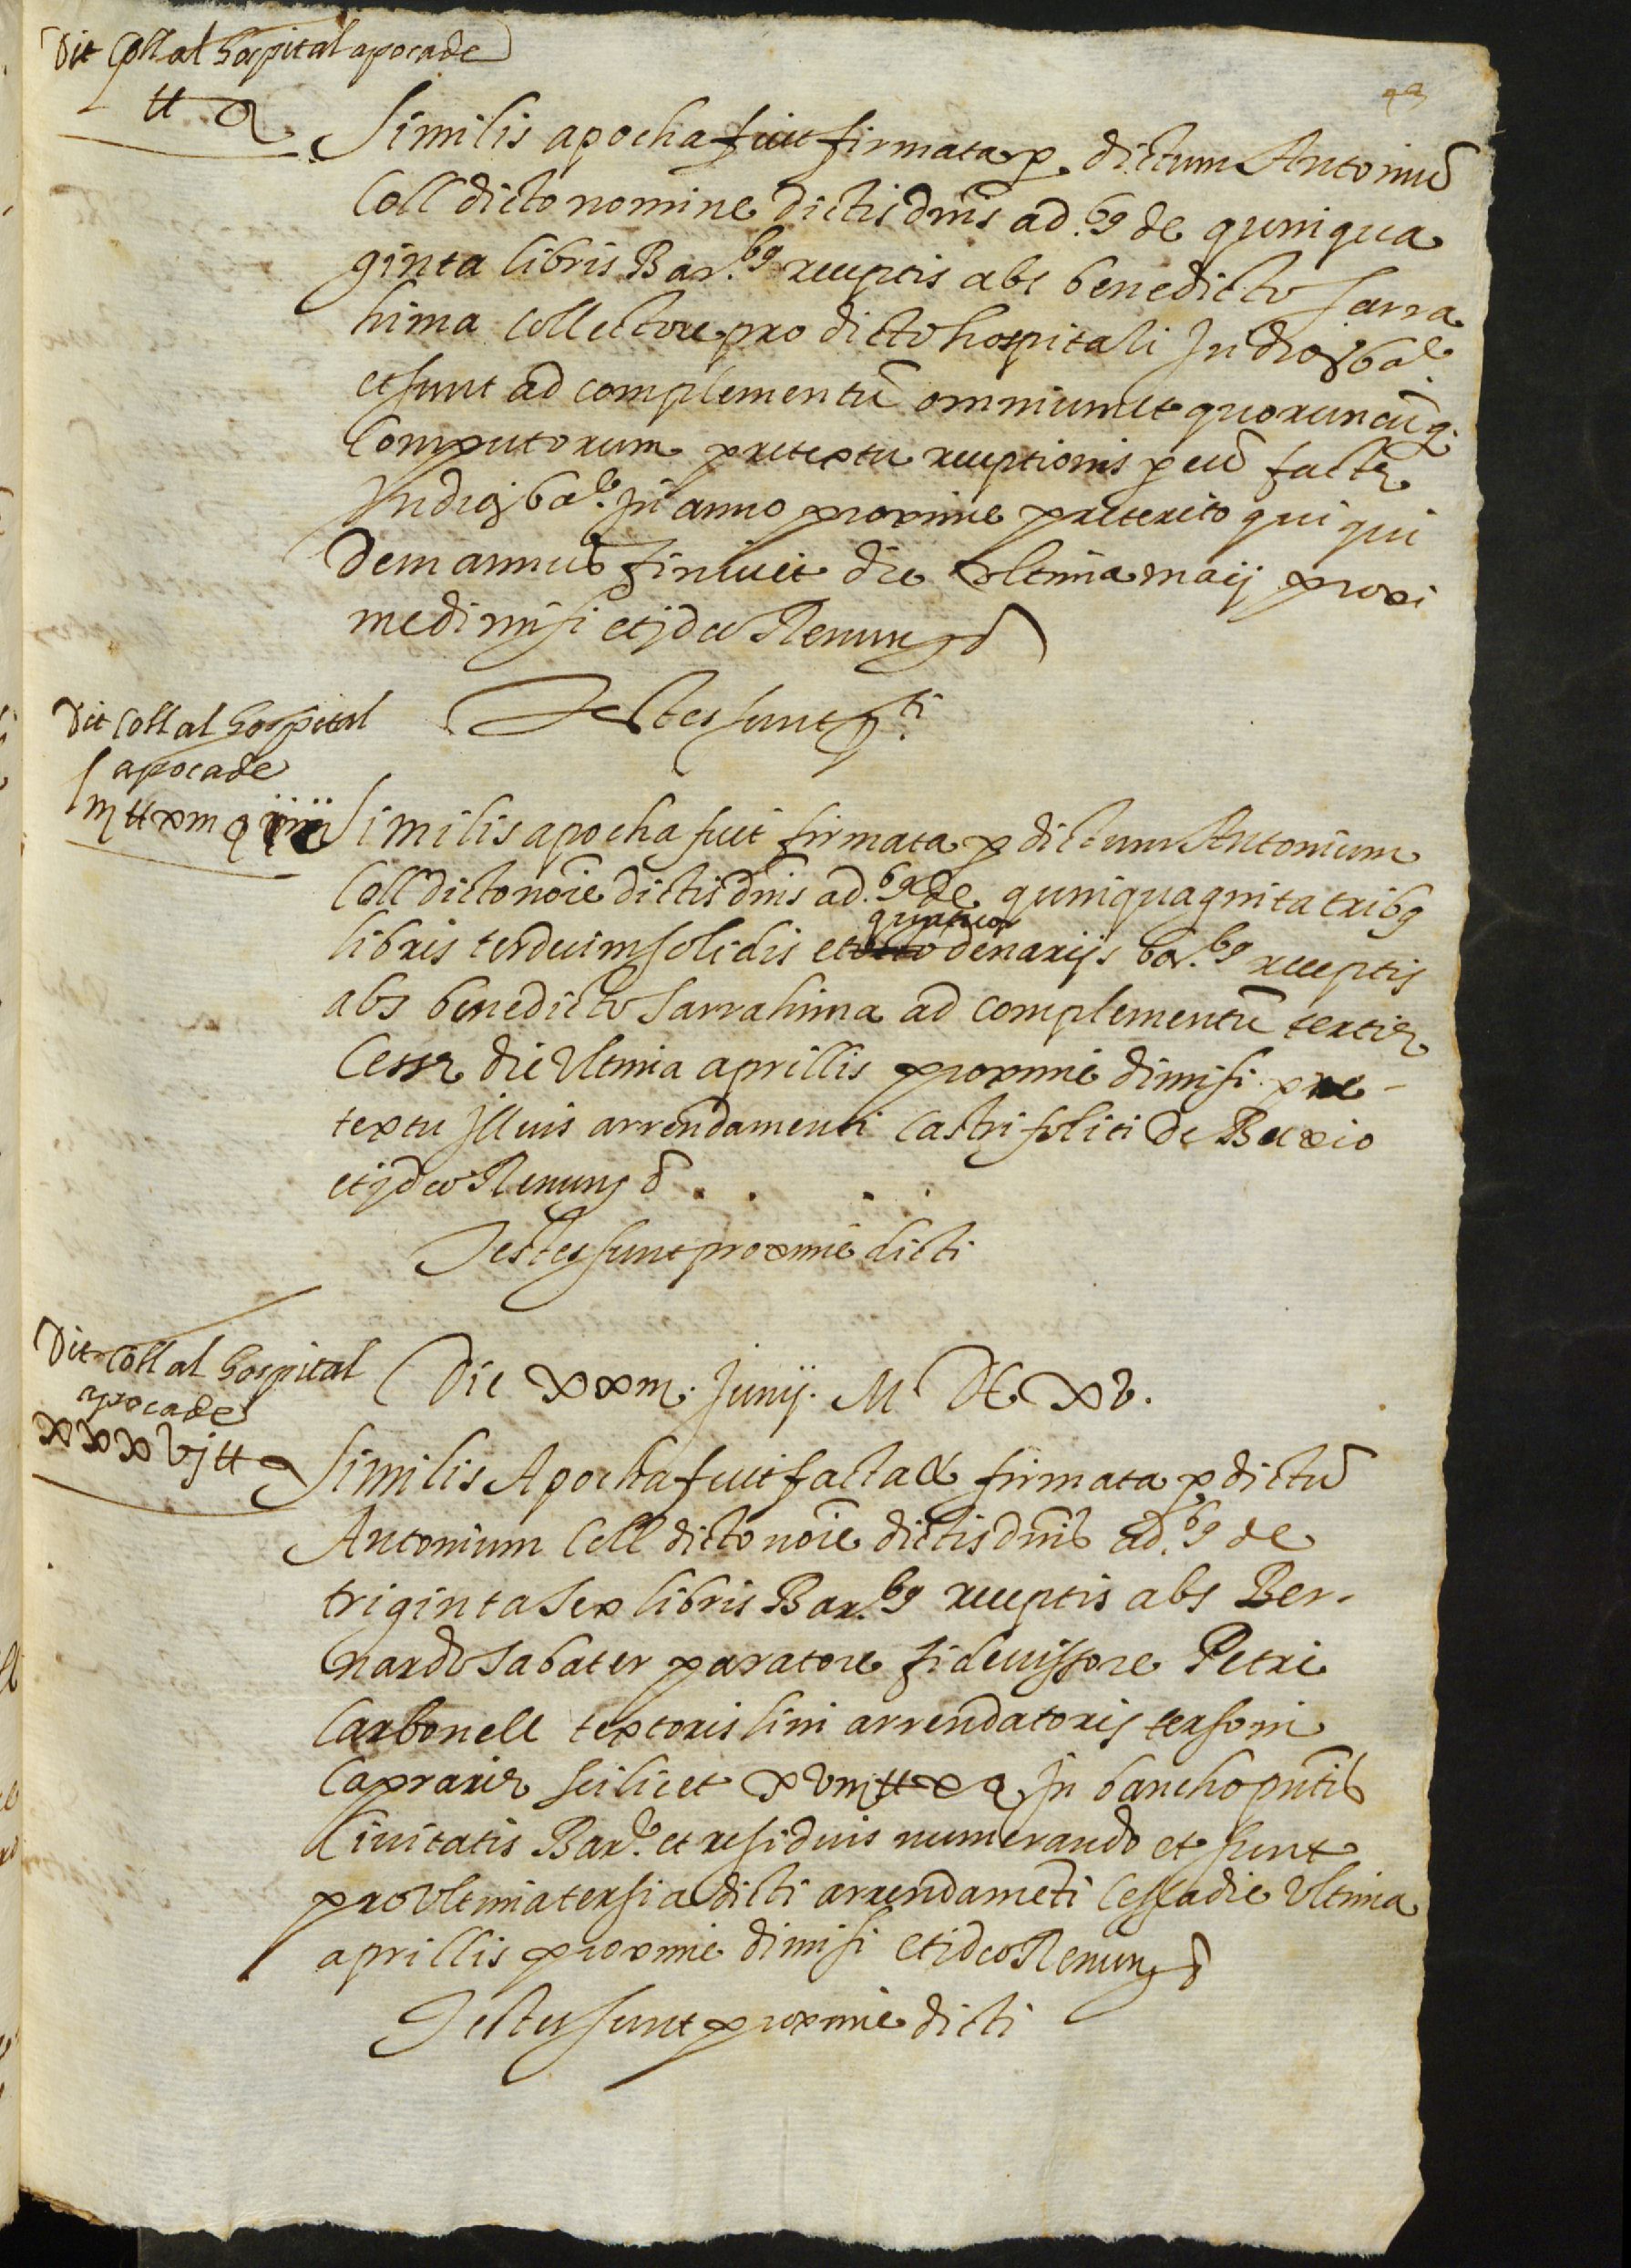 Dit Coll al hospital apoca de
L tt s
Similis apocha fuit firmata p dictum Antoniū
Coll dicto nomine dictis dnis ad.bꝰ de quinqua
ginta libris Bar.bꝰ receptis abs benedicto Sarra
hima collectore pro dicto hospitali In
et sunt ad complementū omnium et quorumcūq.
Computorum pretextu receptionis p eū facte
In anno proxime preterito qui qui
dem annus finivit die ultima maij proxi
me dimisi et ideo Renun
Testes sunt p.ti
Dit Coll al hospital
apoca de
Liij tt xiij s iiij
Similis apocha fuit firmata p dictum Antonium
Coll dicto noīe dictis dnis ad.bꝰ de quinquaginta tribꝰ
quatuor
libris terdecim solidis et denarijs bar.bꝰ receptis
abs benedicto Sarrahima ad complementū tertie
Cesse die ultima aprillis proxime dimisi pre-
textu illius arrendamenti Castri foliti de Buxio
et ideo Renun
Testes sunt proxime dicti
Dit Coll al hospital
apoca de
xxxvj tt
Die xxiij. Junij. M DC xv.
Similis Apocha fuit facta & firmata p dictū
Antonium Coll dicto noīe dictis dnis ad.bꝰ de
triginta sex libris Bar.bꝰ receptis abs Ber-
nardo Sabater paratore fideiussore Petri
Carbonell textoris lini arrendatoris tersoni
Caprarie scilicet xviij tt x s In bancho pntis
Civitatis Bar.e et residuis numerando et sunt
pro ultima tersia dicti arrendamēti Cessa die ultima
aprillis proxime dimisi et ideo Renun
Testes sunt proxime dicti